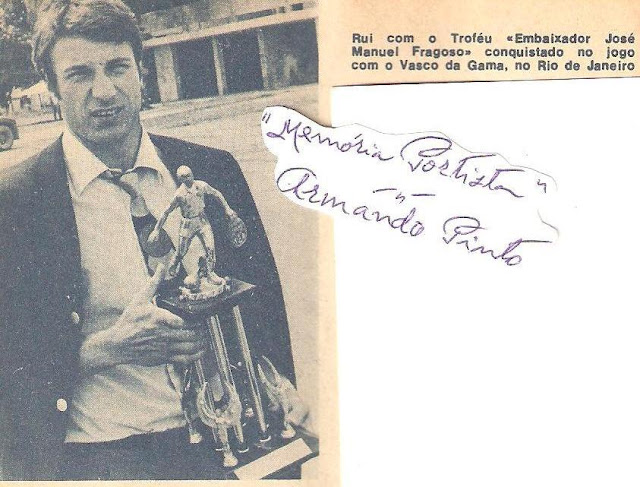 Rui com o Troféu «Embaixador José
Manuel Fragoso» conquistado no jogo
com o Vasco da Gama, no Rio de Janeiro
"Memória Portista"
Armando Pinto